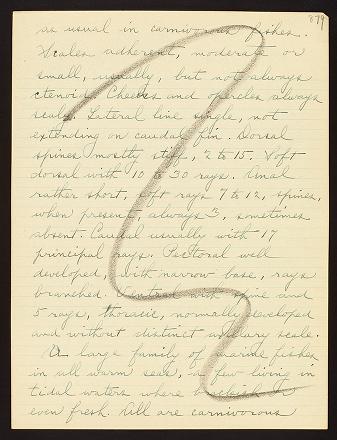 879
as usual in carnivorous fishes.
Scales adherent, moderate or
small, usually, but not always
ctenoid. Cheeks and opercles always
scaly. Lateral line single, not
extending on caudal fin. Dorsal
spines mostly stiff, 2 to 15. Soft
dorsal with 10 to 30 rays. Anal
rather short, soft rays 7 to 12, spines,
when present, always 3, sometimes
absent. Caudal usually with 17
principal rays. Pectoral well
developed, with narrow base, rays
branched. Ventral with spine and
5 rays, thoracic, normally developed
and without distinct axillary scale.
A large family of marine fishes
in all warm seas, a few living in
tidal waters where brackish or
even fresh. All are carnivorous